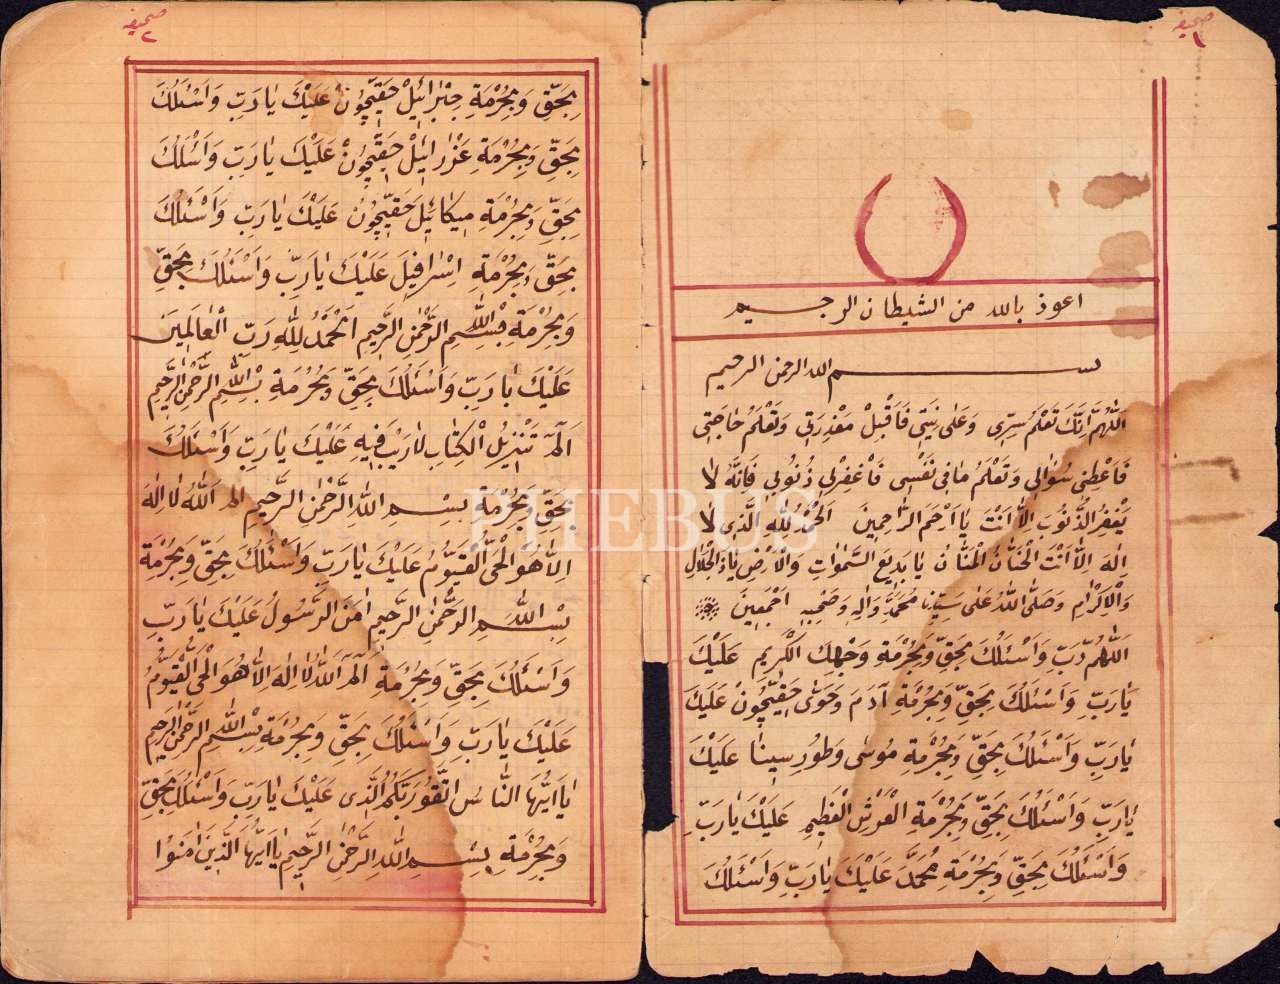 صحيفه ١
اعوذ بالله من الشيطان الرجيم
بسم الله الرحمن الرحيم
اَللّٰهُمَّ اِنَّكَ تَعْلَمُ سِرّى وَعَلٰى نِيَّتى فَاَقْبِلْ مَعْذِرَتى وَتَعْلَمُ حٰاجَتى
فَاَعْطِنى سُوٰالى وَتَعْلَمُ مٰافى نَفْسى فَاغْفِرْلى ذُنُوبى فَاِنَّهُ لٰا
يَغْفِرُ الذُّنُوبَ اِلّٰا اَنْتَ يٰا اَرْحَمَ الرّٰاحِمينَ اَلْحَمْدُ لِلّٰهِ الَّذى لٰا
اِلٰهَ اِلّٰا اَنْتَ الْحَنّٰانُ الْمَنّٰانُ يٰا بَديعَ السَّمٰوٰاتِ وَالْاَرْضِ يٰاذَالْجَلٰالِ
وَالْاِكْرٰامِ وَصَلَّى اللّٰهُ عَلٰى سَيِّدِنٰا مُحَمَّدٍ وَاٰلِهِ وَصَحْبِهِ اَجْمَعينَ
اَللّٰهُمَّ رَبِّ وَاَسْئَلُكَ بِحَقِّ وَبِحُرْمَةِ وَجْهِكَ الْكَريمِ عَلَيْكَ
يٰارَبِّ وَاَسْئَلُكَ بِحَقِّ وَبِحُرْمَةِ آدَمَ وَحَوّٰى حَقيّچُونْ عَلَيْكَ
يٰارَبِّ وَاَسْئَلُكَ بِحَقِّ وَبِحُرْمَةِ مُوسٰى وَطُورِ سينٰا عَلَيْكَ
يٰارَبِّ وَاَسْئَلُكَ بِحَقِّ وَبِحُرْمَةِ الْعَرْشِ الْعَظيمِ عَلَيْكَ يٰارَبِّ
وَاَسْئَلُكَ بِحَقِّ وَبِحُرْمَةِ مُحَمَّدَ عَلَيْكَ يٰارَبِّ وَاَسْئَلُكَ
صحيفه ٢
بِحَقِّ وَبِحُرْمَةِ جِبْرٰائيلْ حَقيّچُونْ عَلَيْكَ يٰارَبِّ وَاَسْئَلُكَ
بِحَقِّ وَبِحُرْمَةِ عَزْرٰائيلْ حَقيّچُونْ عَلَيْكَ يٰارَبِّ وَاَسْئَلُكَ
بِحَقِّ وَبِحُرْمَةِ ميكٰائيلْ حَقيّچُونْ عَلَيْكَ يٰارَبِّ وَاَسْئَلُكَ
بِحَقِّ وَبِحُرْمَةِ اِسْرٰافيلَ عَلَيْكَ يٰارَبِّ وَاَسْئَلُكَ بِحَقِّ
وَبِحُرْمَةِ بِسْمِ اللّٰهِ الرَّحْمٰنِ الرَّحيمِ اَلْحَمْدُ لِلّٰهِ رَبِّ الْعٰالَمينَ
عَلَيْكَ يٰارَبِّ وَاَسْئَلُكَ بِحَقِّ وَبِحُرْمَةِ بِسْمِ اللّٰهِ الرَّحْمٰنِ الرَّحيمِ
الٓمٓ تَنْزيلُ الْكِتٰابِ لٰارَيْبَ فيهِ عَلَيْكَ يٰارَبِّ وَاَسْئَلُكَ
بِحَقِّ وَبِحُرْمَةِ بِسْمِ اللّٰهِ الرَّحْمٰنِ الرَّحيمِ الم اَللّٰهُ لٰا اِلٰهَ
اِلّٰا هُوَ الْحَىُّ الْقَيُّومُ عَلَيْكَ يٰارَبِّ وَاَسْئَلُكَ بِحَقِّ وَبِحُرْمَةِ
بِسْمِ اللّٰهِ الرَّحْمٰنِ الرَّحيمِ اٰمَنَ الرَّسُولُ عَلَيْكَ يٰارَبِّ
وَاَسْئَلُكَ بِحَقِّ وَبِحُرْمَةِ الٓمٓ اَللّٰهُ لٰا اِلٰهَ اِلّٰا هُوَ الْحَىُّ الْقَيُّومُ
عَلَيْكَ يٰارَبِّ وَاَسْئَلُكَ بِحَقِّ وَبِحُرْمَةِ بِسْمِ اللّٰهِ الرَّحْمٰنِ الرَّحيمِ
يٰا اَيُّهَا النّٰاسُ اتَّقُوا رَبَّكُمُ الَّذى عَلَيْكَ يٰارَبِّ وَاَسْئَلُكَ بِحَقِّ
وَبِحُرْمَةِ بِسْمِ اللّٰهِ الرَّحْمٰنِ الرَّحيمِ يٰا اَيُّهَا الَّذينَ اٰمَنُوا
PHEBUS